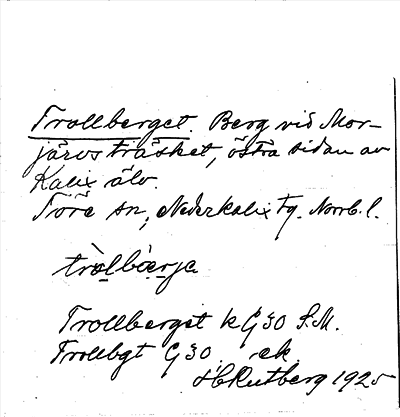 Trollberget. Berg vid Mor-
järvs träsket, östra sidan av
Kalix älv.
Töre sn, Nederkalix tg. Norrb. l.
tròlbàrja
Trollberget k G30 S.M.
Trollbgt G30 ek.
H Rutberg 1925